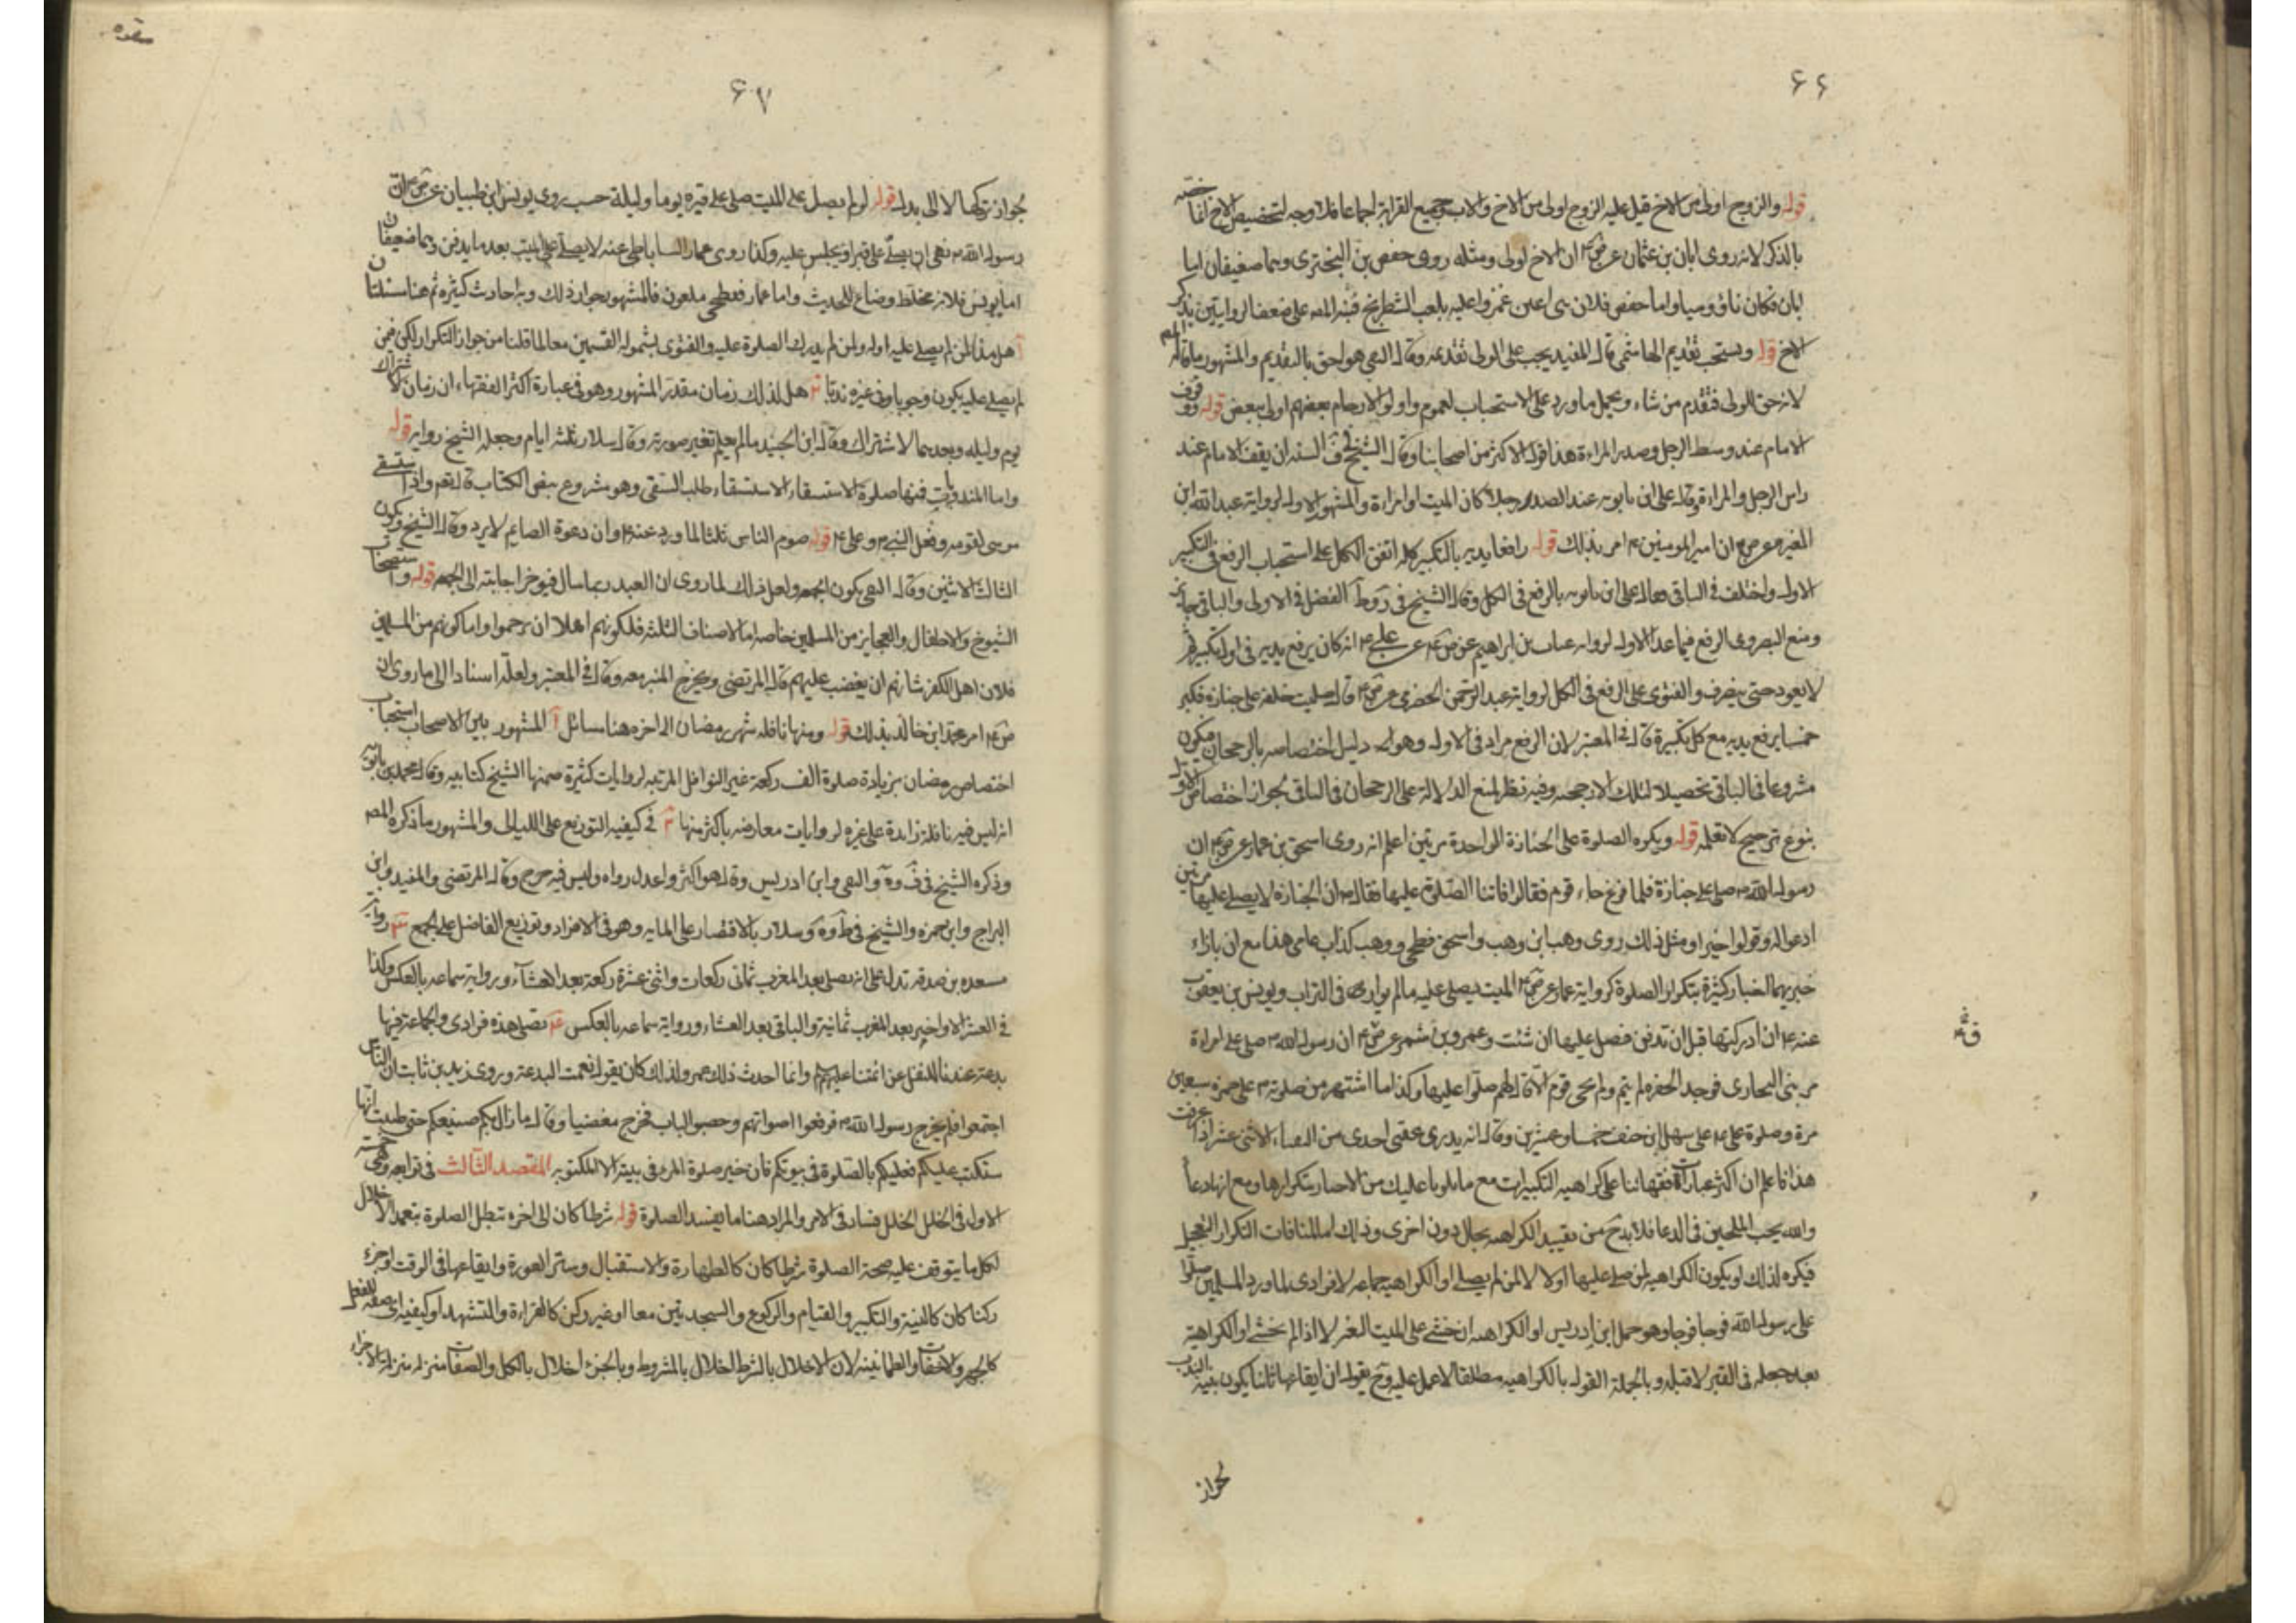 ۶۶
قوله والزوج اولى من الاخ قيل عليه الزوج اولى من الاخ والاب وجميع القرابة اجماعا فلا وجه لتخصيص الاخ
بالذكر لانه روى ابان بن عثمان عن ص ع ان الاخ اولى ومثله روى حفص بن البخترى وهما ضعيفان اما
ابان فكان ناووسيا واما حفص فلان بنى اعين غمزوا عليه بلعب الشطرنج فنبه المص على ضعف الروايتين بذكر
الاخ قوله ويستحب تقديم الهاشمى قال المفيد يجب على الولى تقديمه وقال التقى هو احق بالتقديم والمشهور ما قاله المص
لانه حق للولى فيقدم من شاء ويحمل ما ورد على الاستحباب لعموم واولوا الارحام بعضهم اولى ببعض قوله وقوف
الامام عند وسط الرجل وصدر المراءة هذا قول الاكثر من اصحابنا وقال الشيخ فى ف السنة ان يقف الامام عند
راس الرجل والمراءة وقال على ابن بابويه عند الصدر رجلا كان الميت او امراءة والمشهور الاول لرواية عبد الله ابن
المغيرة عن ص ع ان امير المومنين ع امر بذلك قوله رافعا يديه بالتكبير كله اتفق الكل على استحباب الرفع فى التكبير
الاول واختلف فى الباقى فقال على ابن بابويه بالرفع فى الكل وقال الشيخ فى الفضل فى الاولى والباقى جايز
ومنع البصروى الرفع فيما عدا الاول لرواية غياث بن ابراهيم عن ص ع عن على ع انه كان يرفع يديه فى اول تكبيرة ثم
لا يعود حتى ينصرف والفتوى على الرفع فى الكل لرواية عبد الرحمن العزرمى عن ص ع قال صليت خلفه على جنازة فكبر
خمسا يرفع يديه مع كل تكبيرة قال فى المعتبر لان الرفع مراد فى الاول وهو دليل اختصاصه بالرجحان فيكون
مشروعا فى الباقى تحصيلا لتلك الارجحية وفيه نظر لمنع الدلالة على الرجحان فى الباقى لجواز اختصاص الاول
بنوع ترجيح لا نعلمه قوله ويكره الصلوة على الجنازة الواحدة مرتين اعلم انه روى اسحق بن عمار عن ص ع ان
رسول الله ص صلى على جنازة فلما فرغ جاء قوم فقالوا فاتتنا الصلوة عليها فقال ص ان الجنازة لا يصلى عليها مرتين
ادعوا له وقولوا خيرا ومثل ذلك روى وهب ابن وهب واسحق فطحى ووهب كذاب عامى هذا مع ان بازاء
خبريهما اخبار كثيرة بتكرار الصلوة كرواية عمار عن ص ع الميت يصلى عليه ما لم يوارى فى التراب ويونس بن يعقوب
عنه ع ان ادركتها قبل ان تدفن فصل عليها ان شئت وعمرو بن شمر عن ص ع ان رسول الله ص صلى على امراءة
من بنى النجار فوجد الحفرة لم يتم ولم يجى قوم الا قال لهم صلوا عليها وكذا ما اشتهر من صلوته ص على حمزة سبعين
مرة وصلوة على ع على سهل ابن حنيف خمسا وعشرين وقال انه بدرى عقبى احدى من النقباء الاثنى عشر اذا عرفت
هذا فاعلم ان اكثر عبارات فقهائنا على كراهية التكبيرات مع ما تلونا عليك من الاخبار بتكرارها ومع انها دعا
والله يحب الملحين فى الدعا فلا بد ح من تقييد الكراهية بحال دون اخرى وذلك اما لمنافات التكرار التعجيل
فيكره لذلك او يكون الكراهية لمن صلى عليها اولا لا لمن لم يصل او الكراهية جماعة لا فرادى لما ورد المسلمين صلوا
على رسول الله فوجا فوجا وهو حمل ابن ادريس او الكراهية ان خشى على الميت التغير لا اذا لم يخش او الكراهية
بعد جعله فى القبر لا قبله وبالجملة القول بالكراهية مطلقا لا عمل عليه وح يقول ان ايقاعها ثانيا يكون بنية الندب
لجواز
۶۷
لجواز تركها لا الى بدل قوله لو لم يصل على الميت صلى على قبره يوما وليلة حسب روى يونس ابن ظبيان عن ص ع ان
رسول الله ص نهى ان يصلى على قبر او يجلس عليه وكذا روى عمار الساباطى عنه لا يصلى على الميت بعد ما يدفن وهما ضعيفان
اما يونس فلانه مخلط وضاع للحديث واما عمار ففطحى ملعون فالمشهور جواز ذلك وبه احاديث كثيرة ثم هنا مسئلتان
آ هل هذا لمن لم يصل عليه اولا ولمن لم يدرك الصلوة عليه والفتوى بشموله القسمين معا لما قلنا من جواز التكرار لكن فيمن
لم يصل عليه يكون وجوبا وفى غيره ندبا ب هل لذلك زمان مقدر المشهور وهو فى عبارة اكثر الفقهاء ان زمان الاشتراك
يوم وليلة وبعدهما لا اشتراك وقال ابن الجنيد ما لم يعلم تغير صورته وقال سلار ثلثة ايام وجعله الشيخ رواية قوله
واما المندوبات فمنها صلوة الاستسقاء الاستسقاء طلب السقى وهو مشروع بنص الكتاب قال تعم واذ استسقى
موسى لقومه وفعل النبى ص وعلى ع قوله صوم الناس ثلثا لما ورد عنه ع وان دعوة الصايم لا يرد وقال الشيخ ويكون
الثالث الاثنين وقال التقى يكون الجمعة ولعل ذلك لما روى ان العبد ربما سال فيوخر اجابته الى الجمعة قوله واستصحاب
الشيوخ والاطفال والعجايز من المسلمين خاصة اما الاصناف الثلثة فلكونهم اهلا ان يرحموا واما كونهم من المسلمين
فلان اهل الكفر شانهم ان يغضب عليهم قال المرتضى ويخرج المنبر معه وقال فى المعتبر ولعله اسنادا الى ما روى ان
ص ع امر محمد ابن خالد بذلك قوله ومنها نافلة شهر رمضان الى اخره هنا مسائل آ المشهور بين الاصحاب استحباب
اختصاص رمضان بزيادة صلوة الف ركعة غير النوافل المرتبة لروايات كثيرة ضمنها الشيخ كتابيه وقال محمد بن بابويه
انه ليس فيه نافلة زايدة على غيره لروايات معارضة باكثر منها ب فى كيفية التوزيع على الليالى والمشهور ما ذكره المص
وذكره الشيخ فى والتقى وابن ادريس وقال هو اكثر واعدل رواه وليس فيه حرج وقال المرتضى والمفيد وابن
البراج وابن حمزة والشيخ فى وسلار بالاقتصار على المايه وهو فى الافراد وتوزيع الفاضل على الجمع رواية
مسعدة بن صدقة تدل على انه يصلى بعد المغرب ثمانى ركعات واثنى عشرة ركعة بعد العشاء ورواية سماعة بالعكس وكذا
فى العشر الاواخر بعد المغرب ثمانية والباقى بعد العشاء ورواية سماعة بالعكس تصلى هذه فرادى والجماعة فيها
بدعة عندنا للنقل عن ائمتنا عليهم وانما احدث ذلك عمر ولذلك كان يقول نعمت البدعة وروى زيد بن ثابت ان الناس
اجتمعوا فلم يخرج رسول الله ص فرفعوا اصواتهم وحصبوا الباب فخرج مغضبا وقال ما زال بكم صنيعكم حتى ظننت انها
ستكتب عليكم فعليكم بالصلوة فى بيوتكم فان خير صلوة المرء فى بيته الا المكتوبة المقصد الثالث فى توابعه وهى خمسة
الاول فى الخلل الخلل فساد فى الامر والمراد هنا ما يفسد الصلوة قوله شرطا كان الى اخره تبطل الصلوة بتعمد الاخلال
لكل ما يتوقف عليه صحة الصلوة شرطا كان كالطهارة والاستقبال وستر العورة وايقاعها فى الوقت او جزء
ركنا كان كالنية والتكبير والقيام والركوع والسجدتين معا او غير ركن كالقراءة والتشهد او كيفية اى صفة للفعل
كالجهر والاخفات والطمانينة لان الاخلال بالشرط اخلال بالمشروط وبالجزء اخلال بالكل والصفات منزلة منزلة الاجزاء